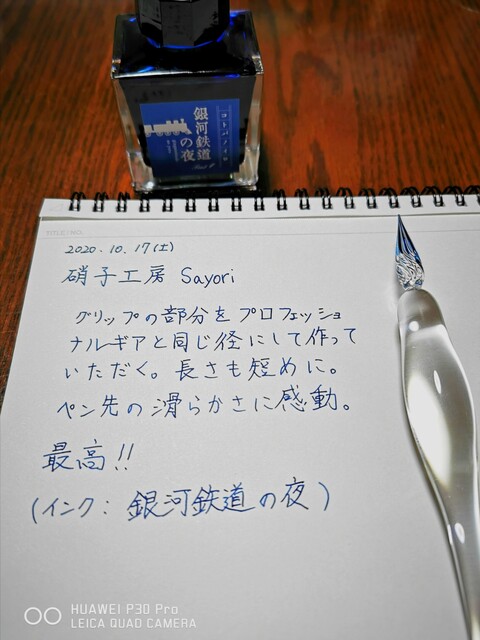 コトバノイロ
銀河鉄道の夜
TITLE / NO.
2020.10.17(土)
硝子工房 Sayori
グリップの部分をプロフェッショ
ナルギアと同じ径にして作って
いただく。長さも短めに。
ペン先の滑らかさに感動。
最高!!
(インク: 銀河鉄道の夜)
HUAWEI P30 Pro
LEICA QUAD CAMERA